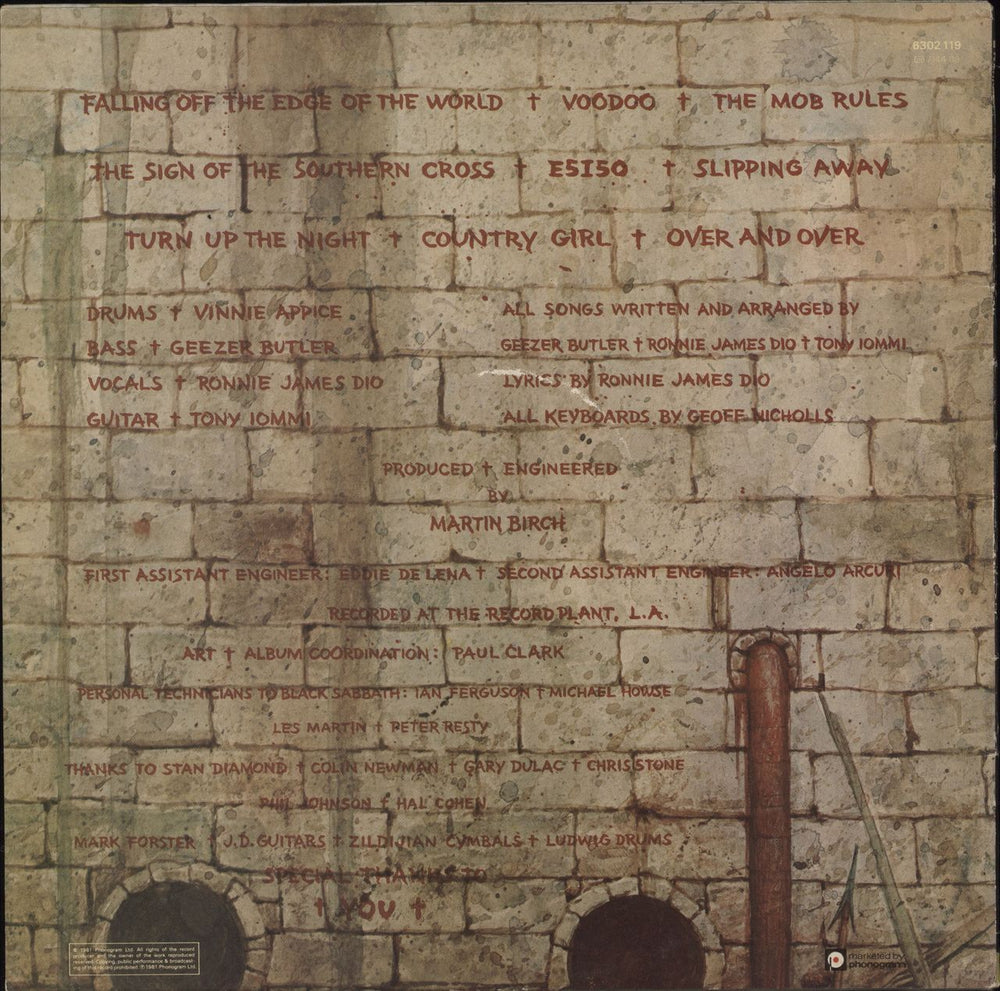 6302 119
FALLING OFF THE EDGE OF THE WORLD † VOODOO † THE MOB RULES
THE SIGN OF THE SOUTHERN CROSS † E5150 † SLIPPING AWAY
TURN UP THE NIGHT † COUNTRY GIRL † OVER AND OVER
DRUMS † VINNIE APPICE
BASS † GEEZER BUTLER
VOCALS † RONNIE JAMES DIO
GUITAR † TONY IOMMI
ALL SONGS WRITTEN AND ARRANGED BY
GEEZER BUTLER † RONNIE JAMES DIO † TONY IOMMI
LYRICS BY RONNIE JAMES DIO
ALL KEYBOARDS BY GEOFF NICHOLLS
PRODUCED † ENGINEERED
BY
MARTIN BIRCH
FIRST ASSISTANT ENGINEER: EDDIE DE LENA † SECOND ASSISTANT ENGINEER: ANGELO ARCURI
RECORDED AT THE RECORD PLANT, L.A.
ART † ALBUM COORDINATION: PAUL CLARK
PERSONAL TECHNICIANS TO BLACK SABBATH: IAN FERGUSON † MICHAEL HOWSE
LES MARTIN † PETER RESTY
THANKS TO STAN DIAMOND † COLIN NEWMAN † GARY DULAC † CHRIS STONE
PHIL JOHNSON † HAL COHEN
MARK FORSTER † J.D. GUITARS † ZILDJIAN CYMBALS † LUDWIG DRUMS
SPECIAL THANKS TO
† YOU †
℗ 1981 Phonogram Ltd. All rights of the record
producer and the owner of the work reproduced
reserved. Copying, public performance & broadcast-
ing of this record prohibited. © 1981 Phonogram Ltd.
marketed by
phonogram